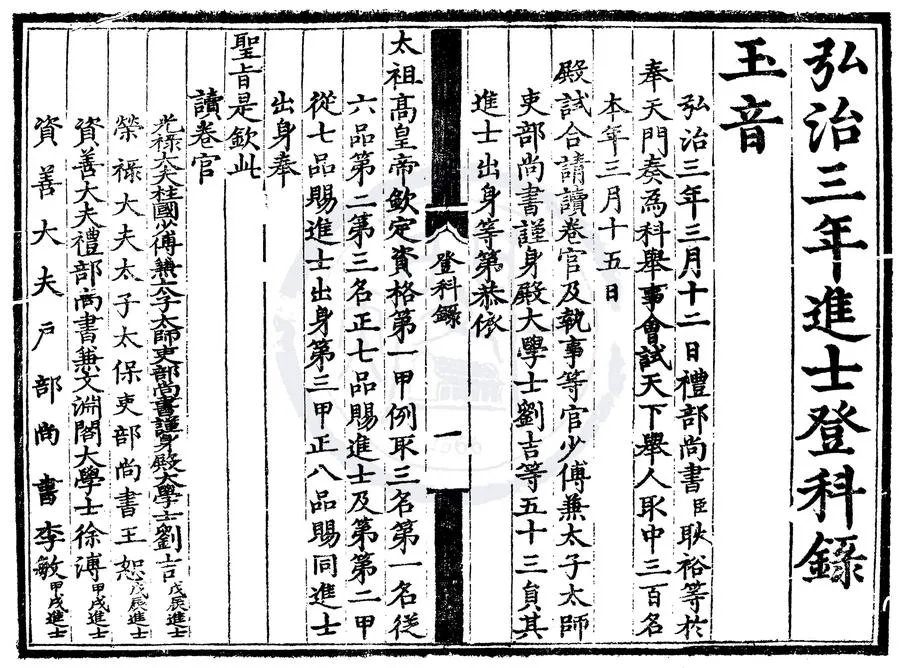 弘治三年進士登科錄
玉音
弘治三年三月十二日禮部尚書臣耿裕等於
奉天門奏為科舉事會試天下舉人取中三百名
本年三月十五日
殿試合請讀卷官及執事等官少傅兼太子太師
吏部尚書謹身殿大學士劉吉等五十三員其
進士出身等第恭依
登科錄 一
太祖高皇帝欽定資格第一甲例取三名第一名從
六品第二第三名正七品賜進士及第第二甲
從七品賜進士出身第三甲正八品賜同進士
出身奉
聖旨是欽此
讀卷官
光祿大夫柱國少傅兼太子太師吏部尚書謹身殿大學士劉吉 戊辰進士
榮祿大夫太子太保吏部尚書王恕 戊辰進士
資善大夫禮部尚書兼文淵閣大學士徐溥 甲戌進士
資善大夫戶部尚書李敏 甲戌進士